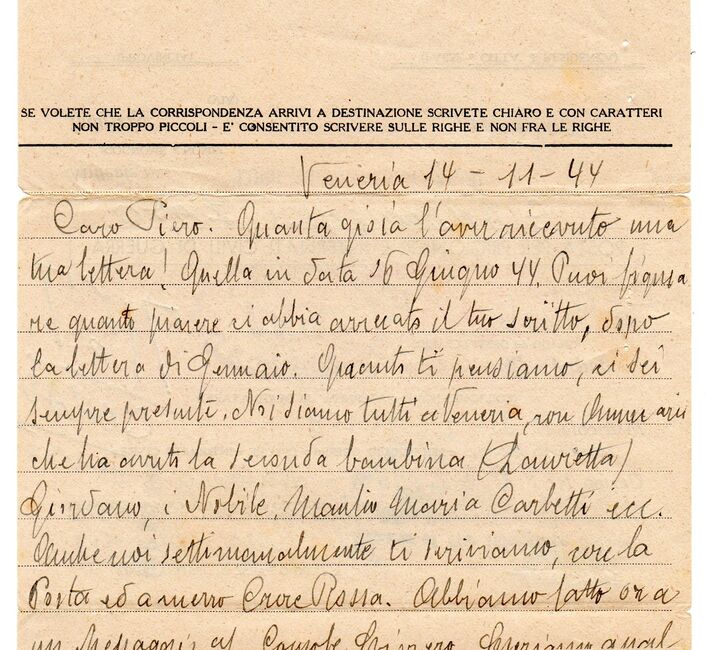 SE VOLETE CHE LA CORRISPONDENZA ARRIVI A DESTINAZIONE SCRIVETE CHIARO E CON CARATTERI
NON TROPPO PICCOLI - E' CONSENTITO SCRIVERE SULLE RIGHE E NON FRA LE RIGHE
Veneria 14 - 11 - 44
Caro Piero. Quanta gioia l'aver ricevuto una
tua lettera! Quella in data 16 Giugno 44. Puoi figura
re quanto piacere ci abbia arrecato il tuo scritto, dopo
la lettera di Gennaio. Quanto ti pensiamo, ci sei
sempre presente. Noi siamo tutti a Veneria, con
che ha avuto la seconda bambina (Laurietta)
Giordano, i Nobile, Manlio Maria Carbetti ecc.
Anche noi settimanalmente ti scriviamo, con la
Posta ed a mezzo Croce Rossa. Abbiamo fatto ora
un Messaggio al Console Speriamo qual